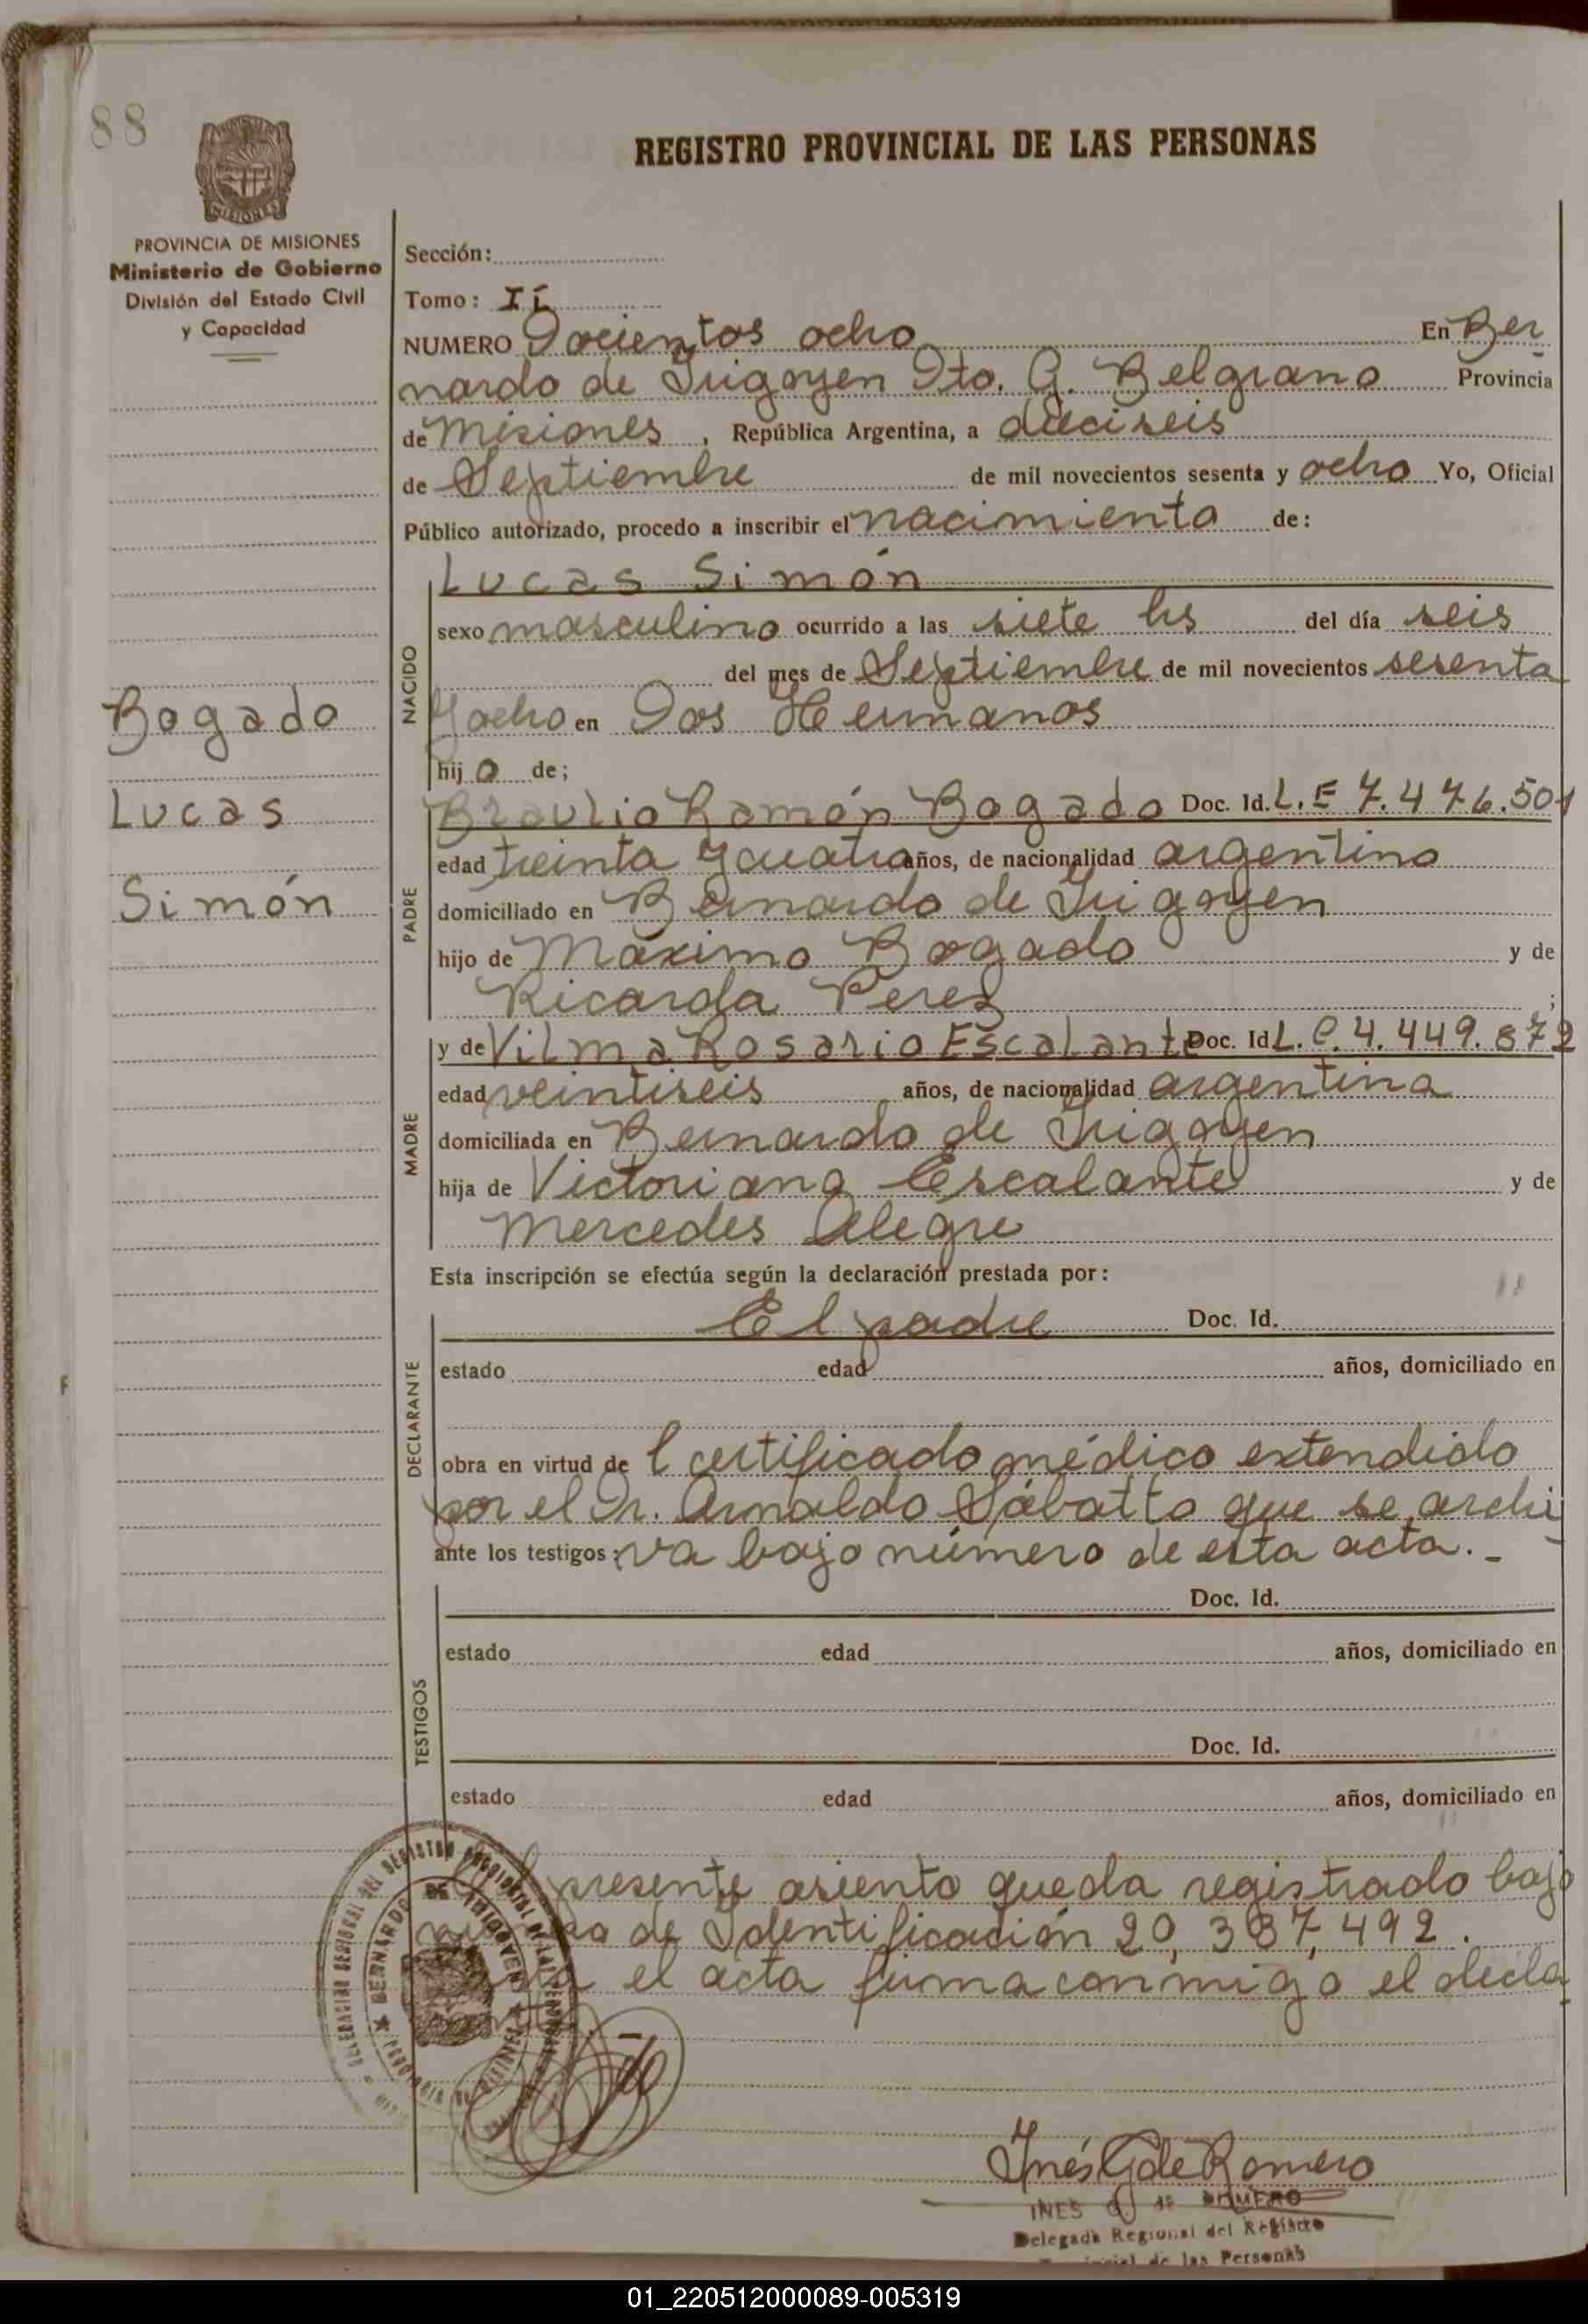 88
REGISTRO PROVINCIAL DE LAS PERSONAS
PROVINCIA DE MISIONES
Ministerio de Gobierno
División del Estado Civil
y Capacidad
Sección:
Tomo: II
NUMERO Docientos ocho En Ber
nardo de Irigoyen Dto. G. Belgrano Provincia
de Misiones, República Argentina, a dieciseis
de Septiembre de mil novecientos sesenta y ocho Yo, Oficial
Público autorizado, procedo a inscribir el nacimiento de:
NACIDO
Lucas Simón
sexo masculino ocurrido a las siete hs del día seis
del mes de Septiembre de mil novecientos sesenta
y ocho en Dos Hermanos
hijo de;
Bogado
Lucas
Simón
PADRE
Braulio Ramón Bogado Doc. Id. L.E 7.476.501
edad treinta y cuatro años, de nacionalidad argentino
domiciliado en Bernardo de Irigoyen
hijo de Máximo Bogado y de
Ricarda Perez ;
MADRE
y de Vilma Rosario Escalante Doc. Id L.C. 4.449.872
edad veintiseis años, de nacionalidad argentina
domiciliada en Bernardo de Irigoyen
hija de Victoriana Escalante y de
Mercedes Alegre
Esta inscripción se efectúa según la declaración prestada por:
DECLARANTE
El padre Doc. Id.
estado edad años, domiciliado en
obra en virtud de l certificado médico extendido
por el Dr. Arnaldo Sábatto que se archi
ante los testigos: va bajo número de esta acta. -
TESTIGOS
Doc. Id.
estado edad años, domiciliado en
Doc. Id.
estado edad años, domiciliado en
presente asiento queda registrado bajo
de Identificación 20,387,492.
el acta firma conmigo el decla
BERNARDO DE IRIGOYEN
Inés G de Romero
INES G de ROMERO
Delegada Regional del Registro
de las Personas
01_220512000089-005319